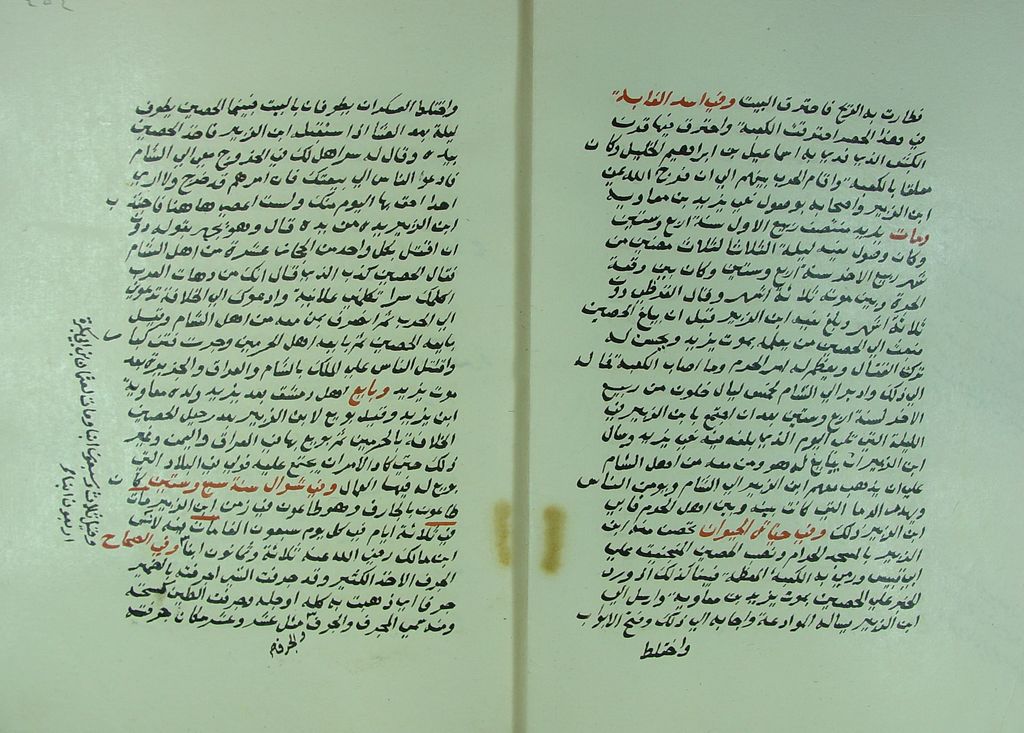 فطارت به الريح فاحترق البيت وفي اسد الغابة
في هذا الحصر احترقت الكعبة واحترق فيها قرن
الكبش الذي فدي به اسماعيل بن ابراهيم الخليل وكان
معلقا بالكعبة واقام الحرب بينهم الي ان فرج الله عن
ابن الزبير واصحابه بوصول نعي يزيد بن معاوية
ومات يزيد منتصف ربيع الاول سنة اربع وستين
وكان وصول نعيه ليلة الثلاثا لثلاث مضين من
شهر ربيع الاخر سنة اربع وستين وكان بين وقعة
الحرة وبين موته ثلاثة اشهر وقال القرطبي دون
ثلاثة اشهر وبلغ نعيه ابن الزبير قبل ان يبلغ الحصين
فبعث الي الحصين من يعلمه بموت يزيد ويحسن له
ترك القتال ويعظم له امر الحرم وما اصاب الكعبة فمال
الي ذلك وادبر الي الشام لخمس ليال خلون من ربيع
الاخر لسنة اربع وستين بعد ان اجتمع بابن الزبير في
الليلة التي تلي اليوم الذي بلغه فيه نعي يزيد وسال
ابن الزبير ان يبايع له هو ومن معه من اهل الشام
علي ان يذهب معهم ابن الزبير الي الشام ويومن الناس
ويهدر الدما التي كانت بينه وبين اهل الحرم فابي
ابن الزبير ذلك وفي حياة الحيوان تحصن منه ابن
الزبير بالمسجد الحرام ونصب الحصين المنجنيق علي
ابي قبيس ورمي به الكعبة المعظمة فبينا كذلك اذ ورد
الخبر علي الحصين بموت يزيد بن معاوية وارسل الي
ابن الزبير يساله الموادعة واجابه الي ذلك وفتح الابواب
واختلط
واختلط العسكران يطوفان بالبيت فبينما الحصين يطوف
ليلة بعد العشا اذا استقبله ابن الزبير فاخذ الحصين
بيده وقال له سرا هل لك في الخروج معي الي الشام
فادعوا الناس الي بيعتك فان امرهم قد مرج ولا اري
احدا احق بها اليوم منك ولست اعصي هاهنا فاجتذب
ابن الزبير يده من يده قال وهو يجهر بقوله دون
ان اقتل بكل واحد من الحجاز عشرة من اهل الشام
فقال الحصين كذب الذي قال انك من دهات العرب
اكلمك سرا تكلمني علانية وادعوك الي الخلافة تدعوني
الي الحرب ثم انصرف بمن معه من اهل الشام وقيل
بايعه الحصين ثم بايعه اهل الحرمين وجرت فتن كبار
واقتتل الناس علي الملك بالشام والعراق والجزيرة بعد
موت يزيد وبايع اهل دمشق بعد يزيد ولده معاوية
ابن يزيد وقيل بويع لابن الزبير بعد رحيل الحصين
الخلافة بالحرمين ثم بويع بها في العراق واليمن وغير
ذلك حتي كاد الامر ان يجتمع عليه فولي في البلاد التي
بويع له فيها العمال وفي شوال سنة سبع وستين كان
طاعون بالجارف وهو طاعون في زمن ابن الزبير مات
في ثلاثة ايام في كل يوم سبعون الفا مات فيه لانس
ابن مالك رضي الله عنه ثلاثة وثمانون ابنا وفي الصحاح
الجرف الاخذ الكثير وقد جرفت الشي اجرفه بالضم
جرفا اي ذهبت به كله او جله وجرفت الطين كسحته
ومنه سمي المجرف والجرف مثل عسر وعسر مكان جرفته
والجرفه
وقيل ثلاث وسبعون ابنا ومات لعثمان بن ابي بكرة
اربعون ابنا